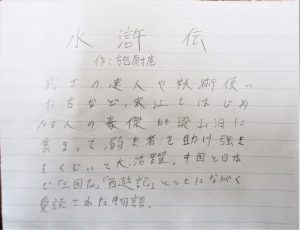 水滸伝
作:施耐庵
武士の達人や妖術使い
たちなど、宋江をはじめ
108人の豪傑が梁山泊に
集まって弱き者を助け強き
をくじいて大活躍。中国と日本
で「三国志」「西遊記」とともにながく
愛読された物語。